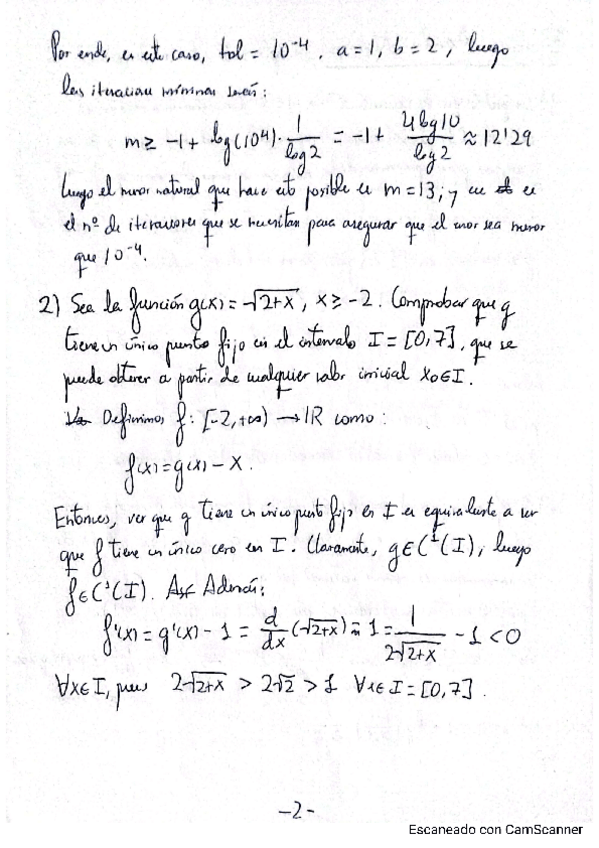 Por ende, en este caso, tol = 10^-4, a = 1, b = 2, luego
las iteraciones mínimas serán:
m ≥ -1 + log(10^4) · 1/log 2 = -1 + 4 log 10/log 2 ≈ 12'29
Luego el menor natural que hace esto posible es m = 13; y es
el nº de iteraciones que se necesitan para asegurar que el error sea menor
que 10^-4.
2) Sea la función g(x) = √2+x, x ≥ -2. Comprobar que g
tiene un único punto fijo en el intervalo I = [0,7], que se
puede obtener a partir de cualquier valor inicial x₀ ∈ I.
Definimos f: [-2,+∞) → IR como:
f(x) = g(x) - x.
Entonces, ver que g tiene un único punto fijo en I es equivalente a ver
que f tiene un único cero en I. Claramente, g ∈ C¹(I), luego
f ∈ C¹(I). Además:
f'(x) = g'(x) - 1 = d/dx (√2+x) - 1 = 1/2√2+x - 1 < 0
∀x ∈ I, pues 2√2+x > 2√2 > 1 ∀x ∈ I = [0,7].
-2-
Escaneado con CamScanner